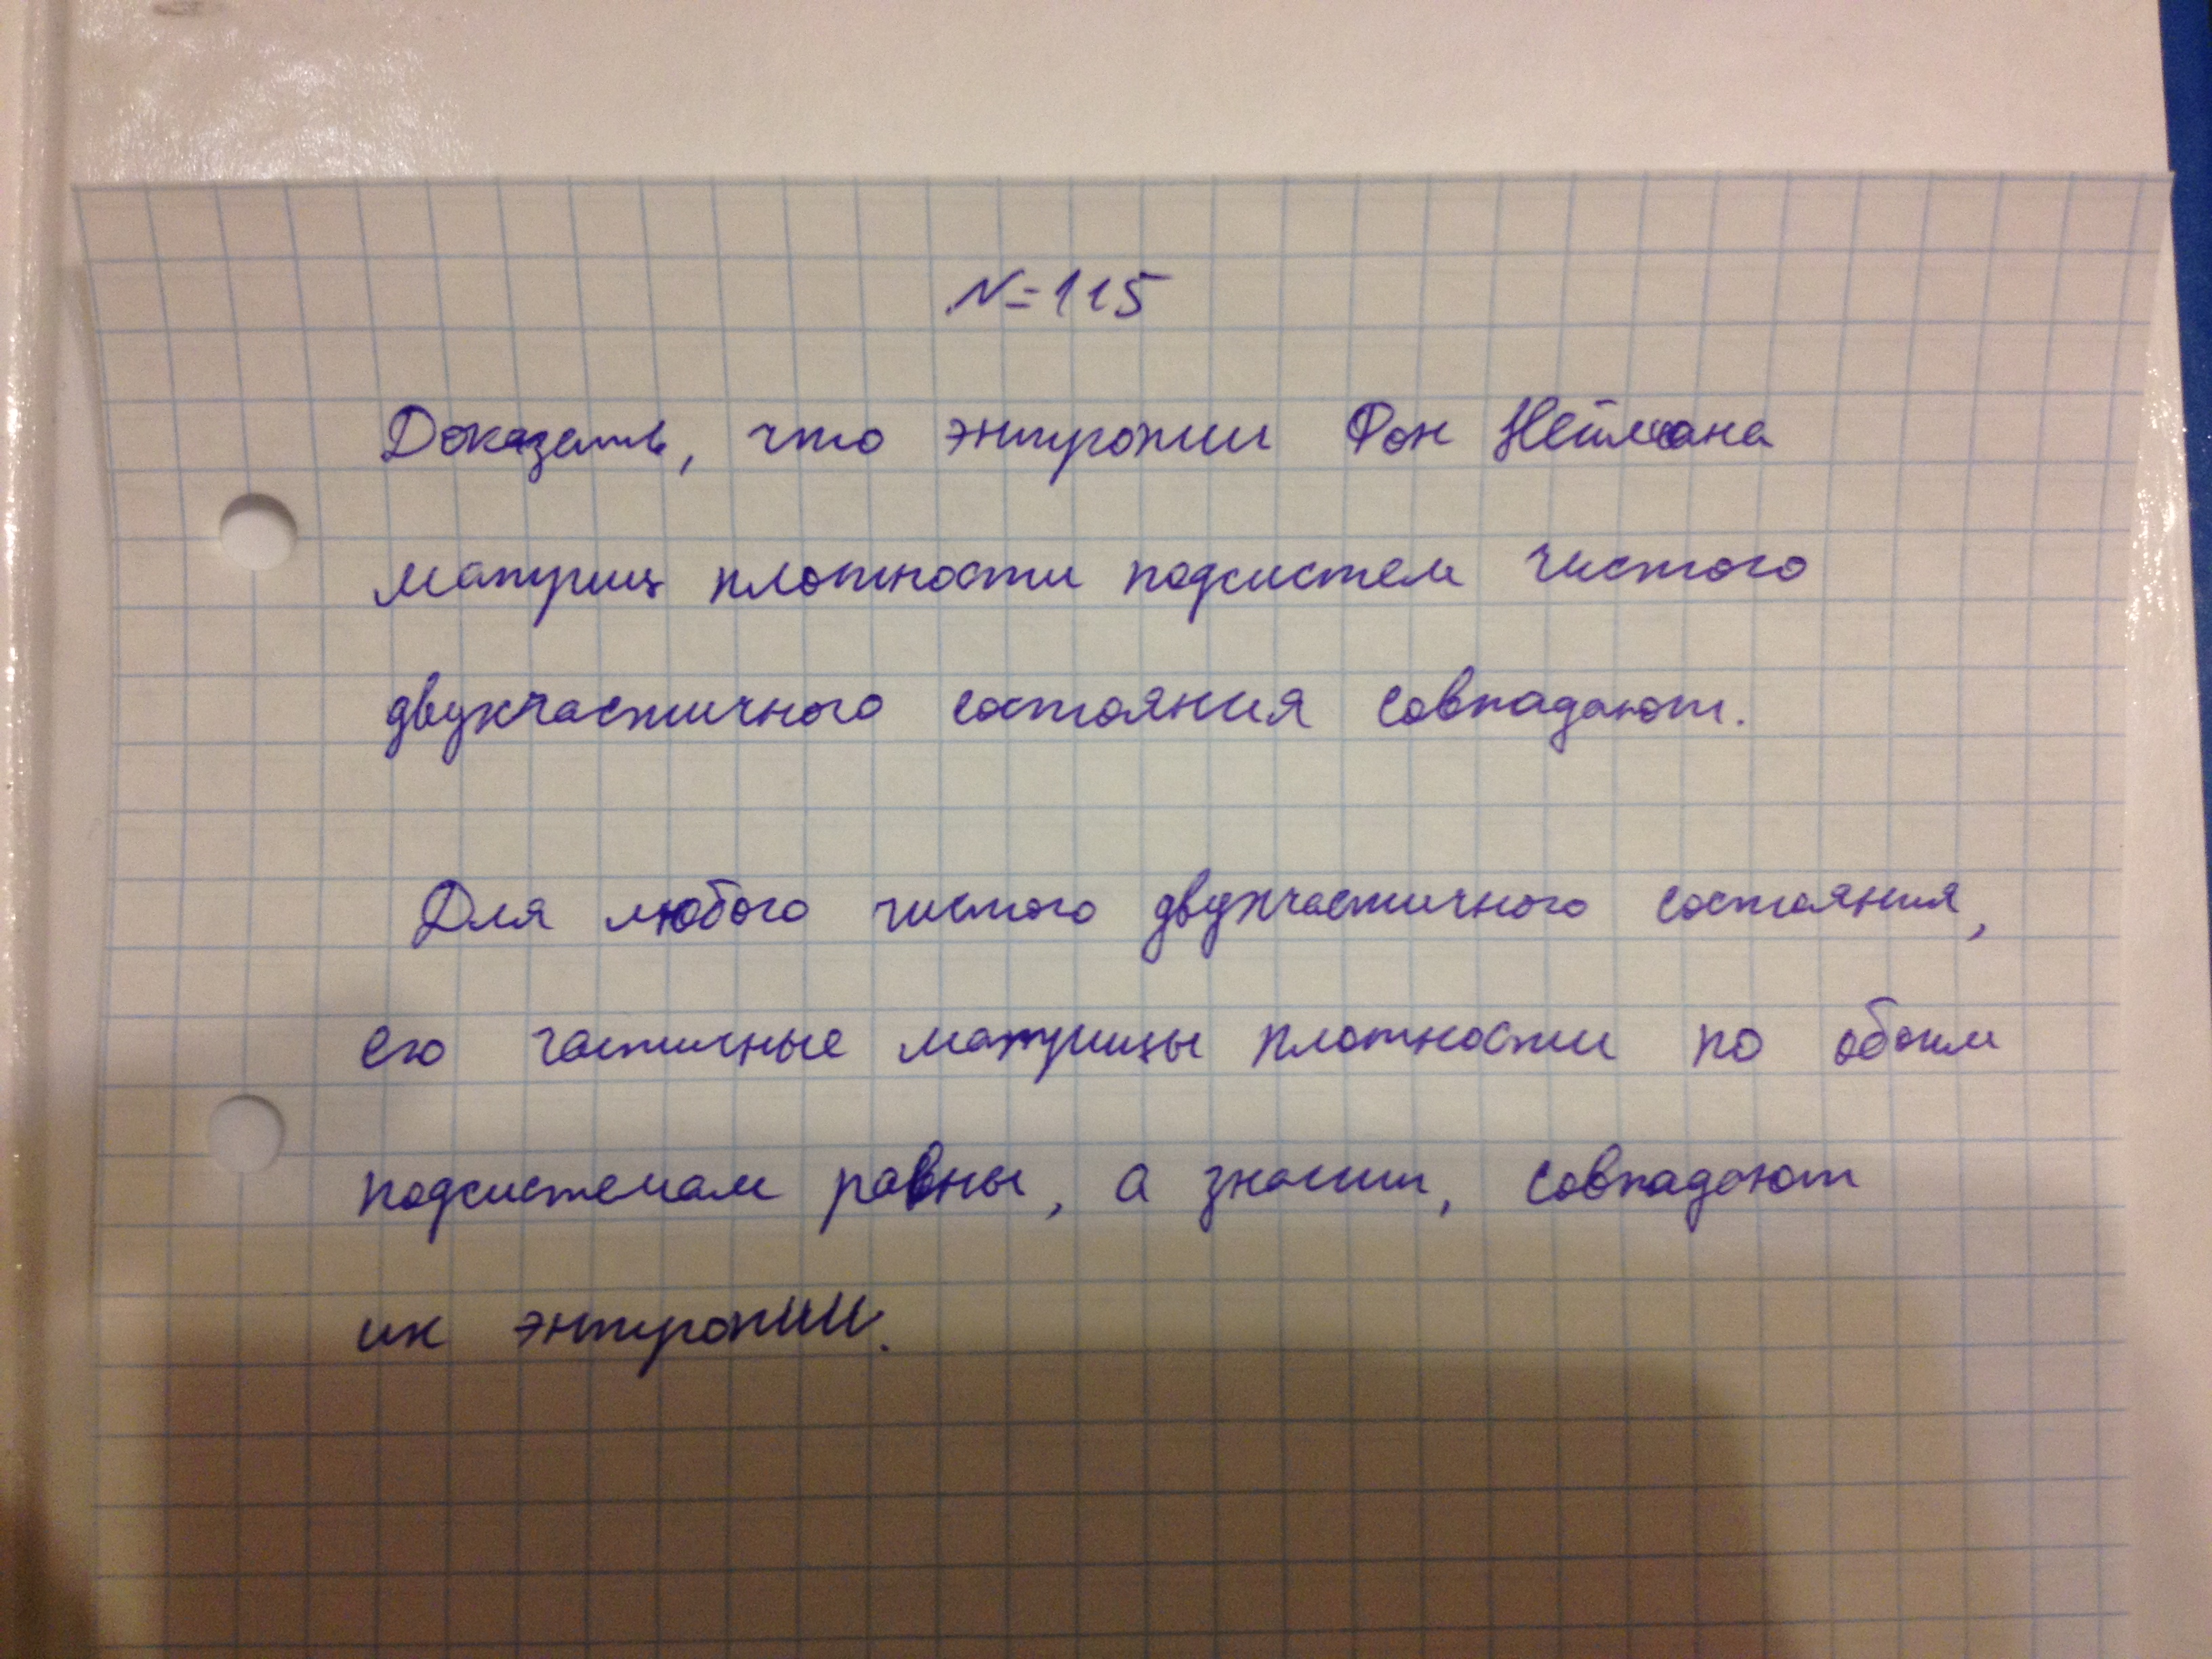 №115
Доказать, что энтропии Фон Неймана
матриц плотности подсистем чистого
двухчастичного состояния совпадают.
Для любого чистого двухчастичного состояния,
его частичные матрицы плотности по обоим
подсистемам равны, а значит, совпадают
их энтропии.